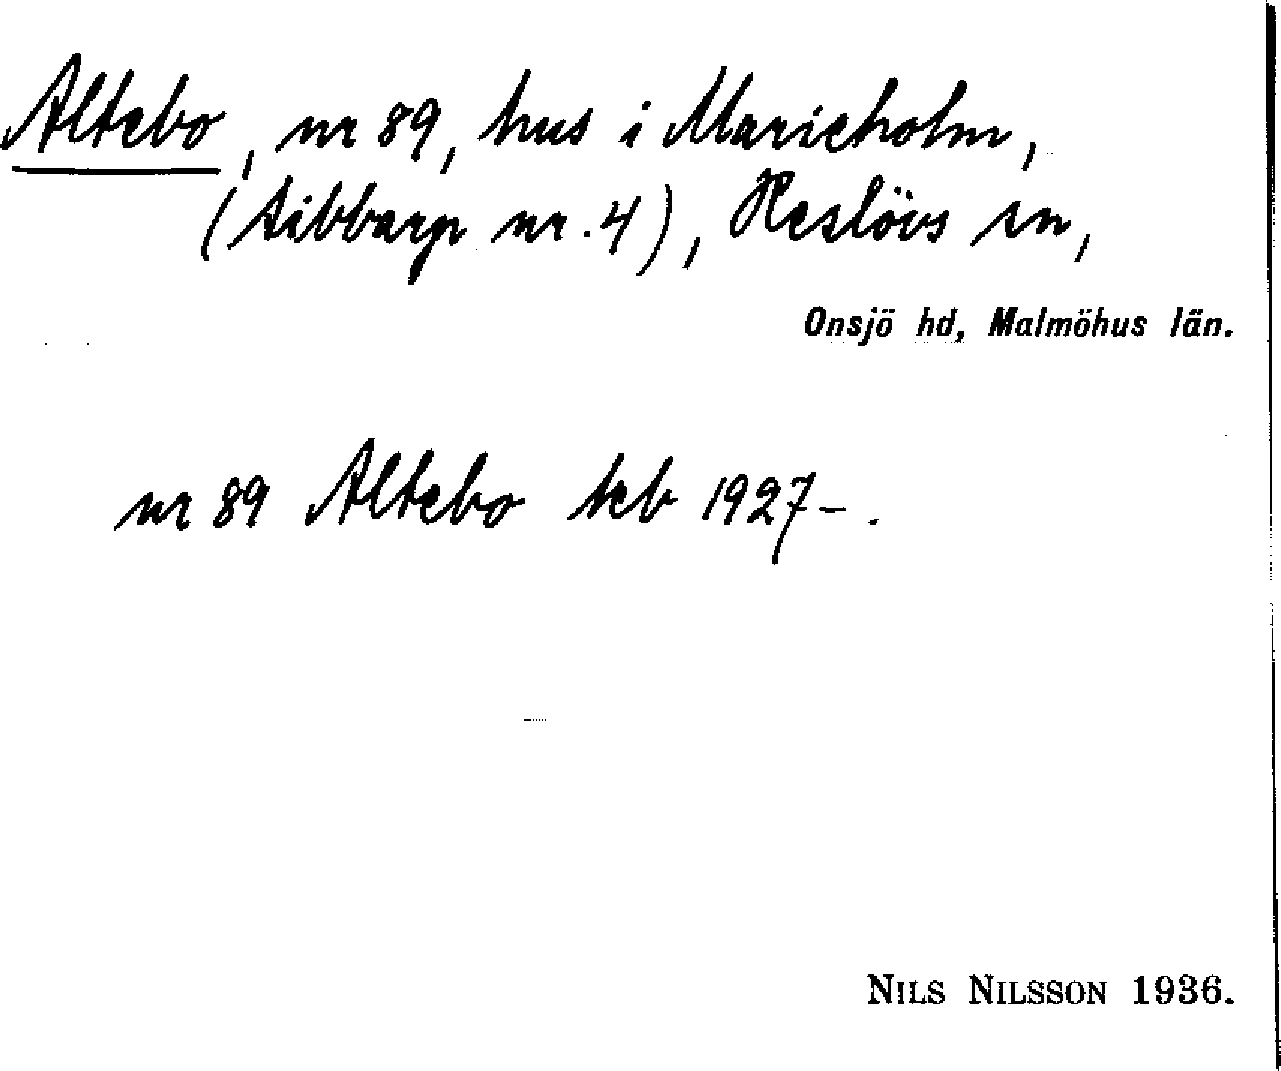 Altebo, nr 89, hus i Marieholm,
(Aibbarp nr. 4), Reslövs sn,
Onsjö hd, Malmöhus län.
nr 89 Altebo kb 1927-.
NILS NILSSON 1936.